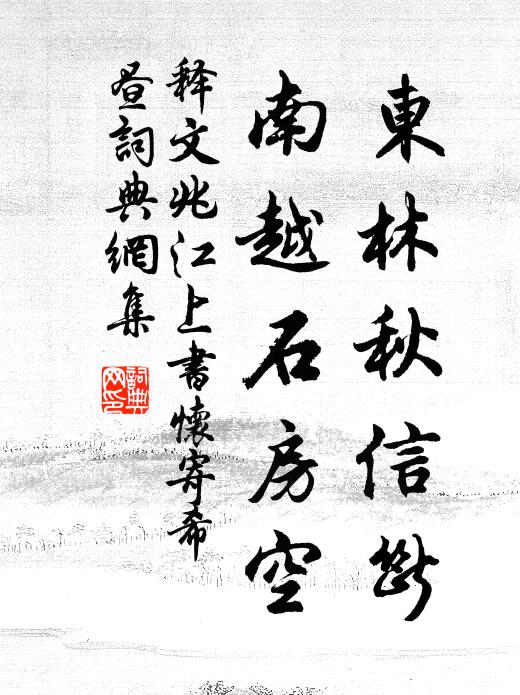 東林秋信斷
南越石房空
释文兆江上書懷寄希
晝詞典網集
詞典
网印